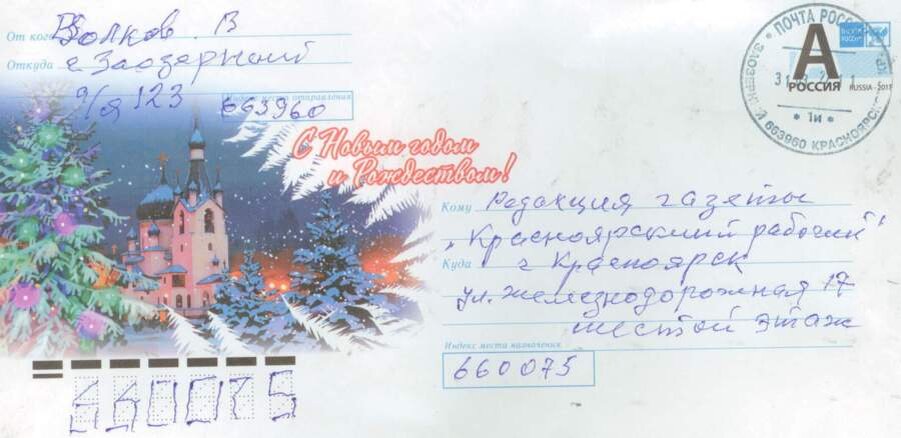 От кого Волков. В
Откуда г. Заозерный
а/я 123
Индекс места отправления
663960
С Новым годом
и Рождеством!
ПОЧТА РОССИИ
А
РОССИЯ
RUSSIA
663960 КРАСНОЯРСК
* 1и *
Кому Редакция газеты
"Красноярский рабочий"
Куда г Красноярск
ул. железнодорожная 17
шестой этаж
Индекс места назначения
660075
660075